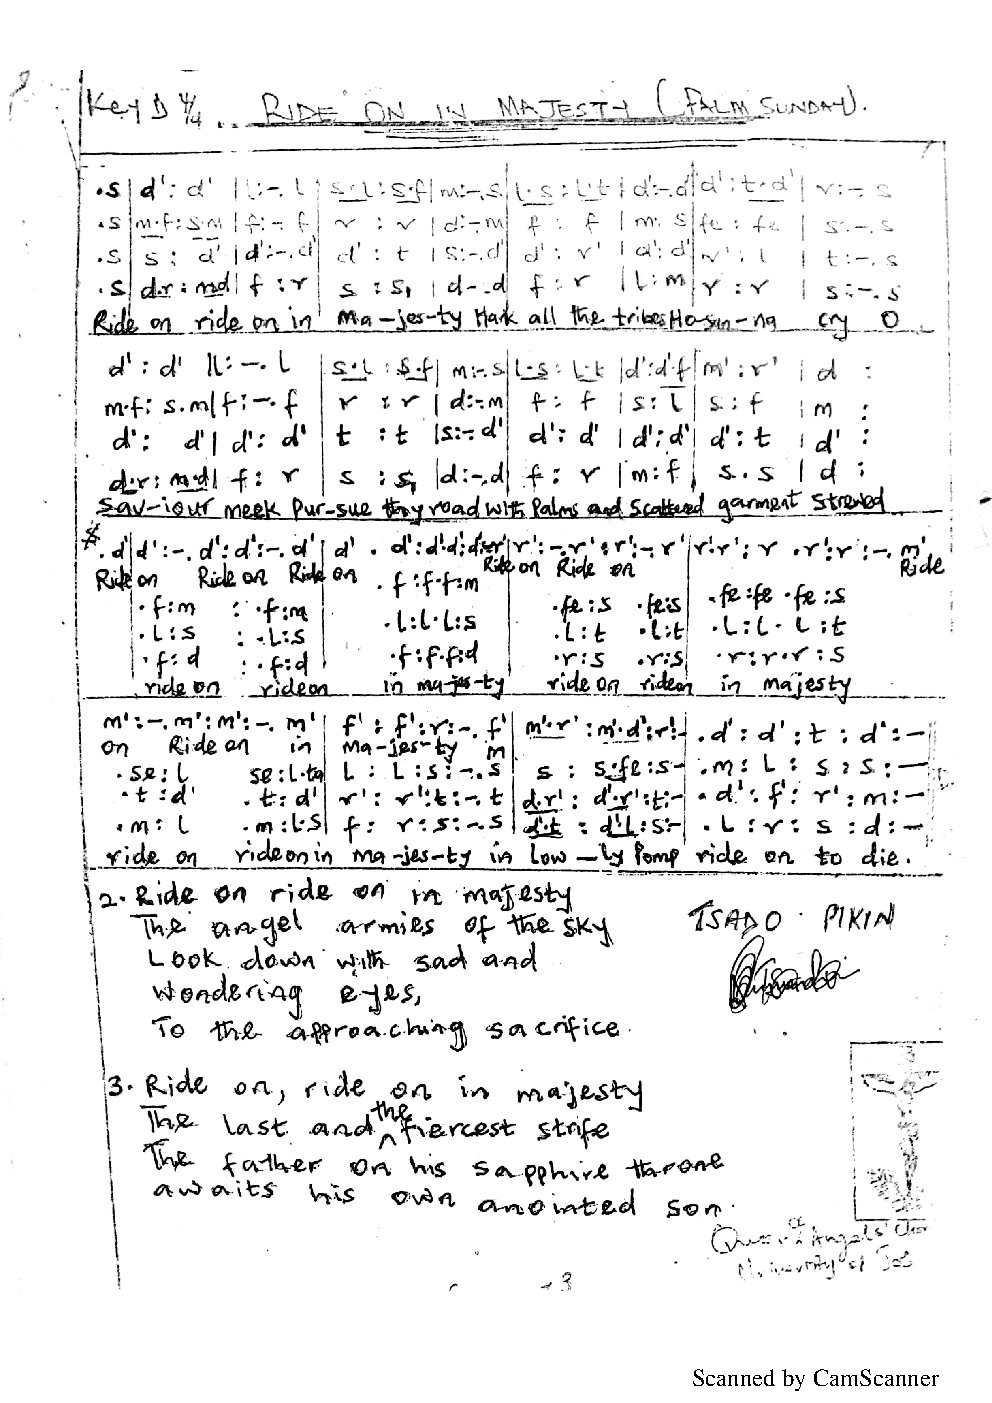 Key D 4/4 RIDE ON IN MAJESTY (PALM SUNDAY).
.s|d':d' |l:-.l |s.l:s.f|m:-.s|l.s:l.t|d':-.d'|d':t.d'|r:-.s
.s|m.f:s.m|f:-.f r:r |d:-.m f:f |m:s|fe:fe |s:-.s
.s|s:d' |d':-.d' d':t |s:-.d' d':r' |d':d' r':l |t:-.s
.s|d.r:m.d|f:r s:s, |d-.d f:r |l:m r:r |s:-.s
Ride on ride on in Ma-jes-ty Hark all the tribes Ho-san-na cry O
d':d' |l:-.l |s.l:s.f|m:-.s|l.s:l.t|d':d'.f|m':r' |d :
m.f:s.m|f:-.f r:r|d:-.m f:f |s:l|s:f |m :
d': d'|d':d' t:t |s:-d' d':d' |d':d'|d':t |d' :
d.r:m.d|f:r s:s, |d:-.d f:r |m:f s.s |d :
Sav-iour meek Pur-sue thy road with Palms and Scattered garment Strewed
.d'|d':-.d':d':-.d' d'.d':d':d':d'.r'|r':-.r':r':-.r' r':r':r.r':r':-.m'
Ride on Ride on Ride on Ride on Ride on Ride
.f:m : .f:m .f:f.f:m .fe:s .fe:s .fe:fe.fe:s
.L:s : .L:s .L:L.L:s .L:t .L:t .L:L.L:t
.f:d : .f:d .f:f.f:d .r:s .r:s .r:r.r:s
ride on ride on in ma-jes-ty ride on ride on in majesty
m':-.m':m':-.m' f':f':r:-.f' m'.r':m'.d':r':- .d':d':t:d':-
on Ride on in ma-jes-ty m
.se:L se:L.ta L:L:s:-.s s:s.fe:s- .m:L:s:s:-
.t:d' .t:d' r':r':t:-.t d.r':d'.r':t:- .d':f':r':m:-
.m:L .m:L.S f:r:s:-.s d'.t:d'.L:S:- .L:r:s:d:-
ride on ride on in ma-jes-ty in Low-ly Pomp ride on to die.
2. Ride on ride on in majesty
The angel armies of the sky
Look down with sad and
wondering eyes,
To the approaching sacrifice.
TSADO. PIKIN
3. Ride on, ride on in majesty
The last and the fiercest strife
The father on his sapphire throne
awaits his own anointed son.
Angels' Choir
University of Jos
3
Scanned by CamScanner